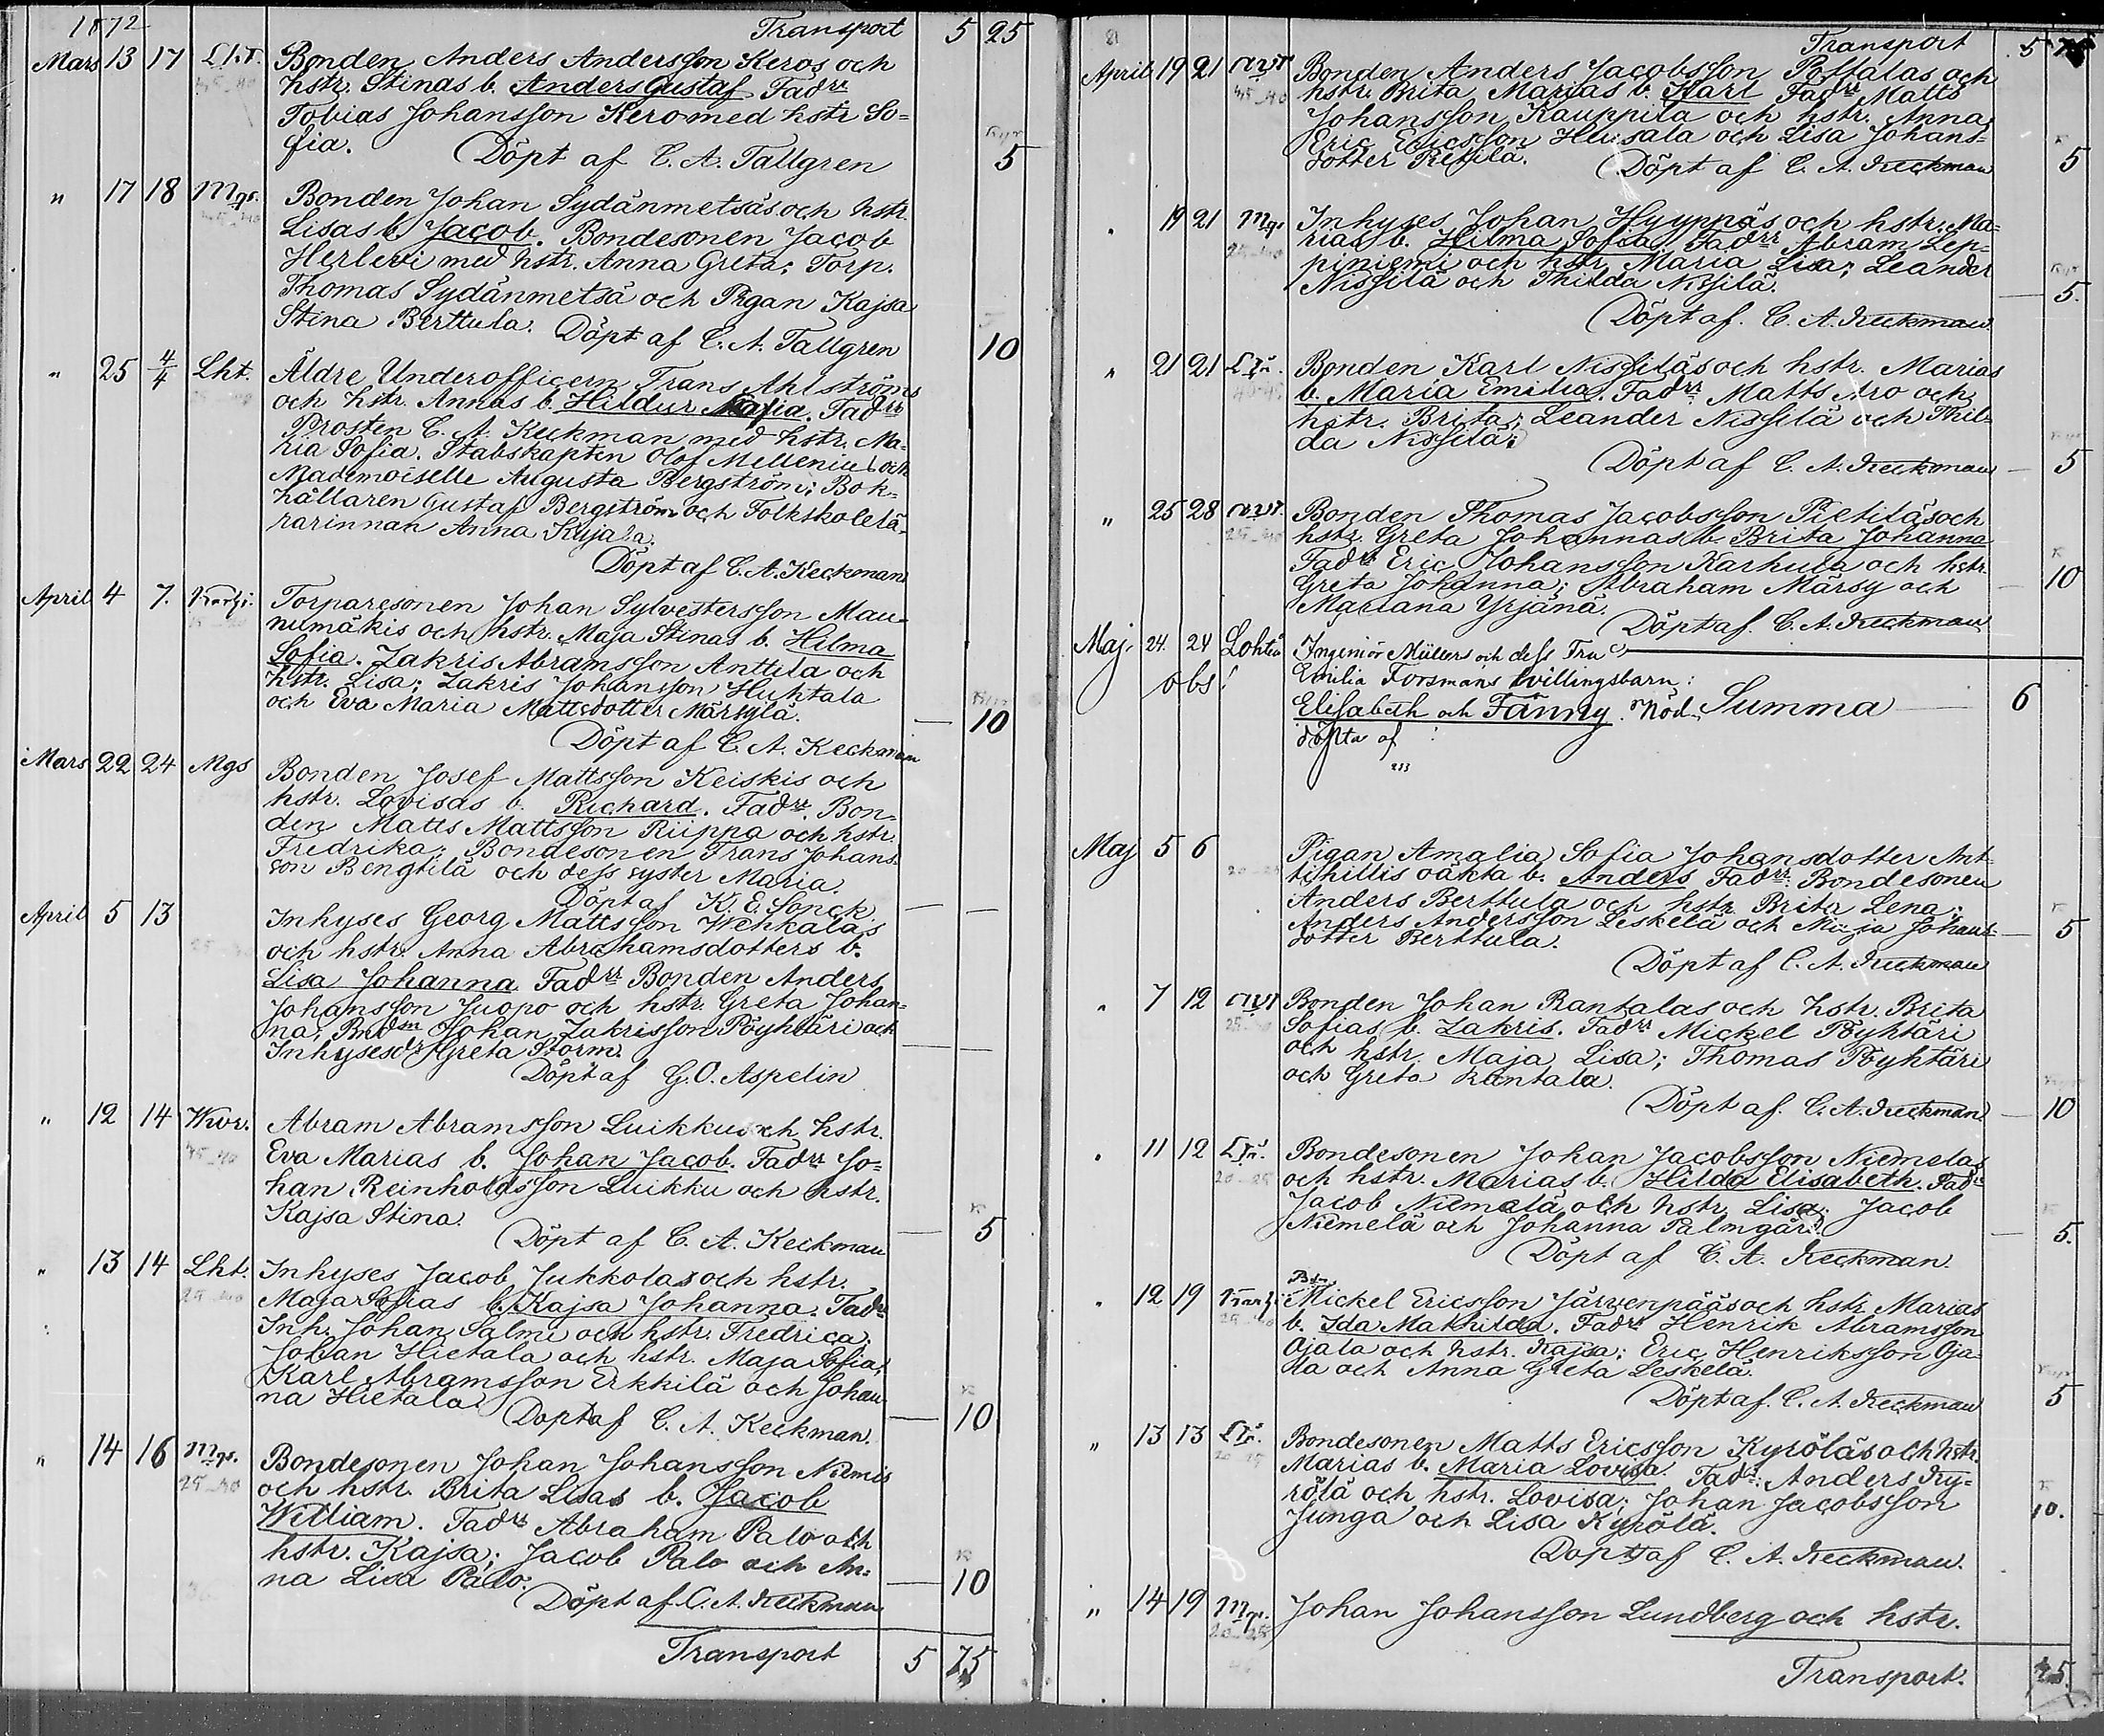 1872 Transport 5 25
Mars 13 17 Lht. Bonden Anders Andersson Keros och
hstr. Stinas b. Anders Gustaf Fadrr
Tobias Johansson Kero med hstr So=
fia. Döpt af C. A. Tallgren 5
" 17 18 Mgs. Bonden Johan Sydänmetsäs och hstr.
Lisas b. Jacob. Bondesonen Jacob
Herlevi med hstr. Anna Greta; Torp.
Thomas Sydänmetsä och Pigan Kajsa
Stina Berttula. Döpt af C. A. Tallgren 10
" 25 4/4 Lht. Äldre Underofficern Frans Ahlströms
och hstr. Annas b. Hildur Fadrr
Prosten C. A. Keckman med hstr. Ma=
ria Sofia. Stabskapten Olof Mellenius och
Mademoiselle Augusta Bergström; Bok=
hållaren Gustaf Bergström och Folkskolelä=
rarinnan Anna Kujala.
Döpt af C. A. Keckman
April 4 7. Torparesonen Johan Sylvestersson Mau=
numäkis och hstr. Maja Stinas b. Hilma
Sofia. Zakris Abramsson Anttila och
hstr. Lisa; Zakris Johansson Huhtala
och Eva Maria Mattsdotter Märsylä. 10
Döpt af C. A. Keckman
Mars 22 24 Mgs Bonden Josef Mattsson Keiskis och
hstr. Lovisas b. Richard. Fadrr. Bon=
den Matts Mattsson Riippa och hstr.
Fredrika; Bondesonen Frans Johans=
son Bengtilä och dess syster Maria.
Döpt af K. E. Sonck.
April 5 13 Inhyses Georg Mattsson Wehkalas
och hstr. Anna Abrahamsdotters b.
Lisa Johanna Fadrr Bonden Anders
Johansson Juopo och hstr. Greta Johan=
na; Bndsn Johan Zakrisson Pöyhtäri och
Inhysesdr Greta Storm.
Döpt af G. O. Aspelin
" 12 14 Wwr. Abram Abramsson Luikkus och hstr.
Eva Marias b. Johan Jacob. Fadrr Jo=
han Reinholdsson Luikku och hstr.
Kajsa Stina. 5
Döpt af C. A. Keckman
" 13 14 Lht. Inhyses Jacob Jukkolas och hstr.
Maja Sofias b. Kajsa Johanna. Fadrr
Inh. Johan Salmi och hstr. Fredrica;
Johan Hietala och hstr. Maja Sofia;
Karl Abramsson Erkkilä och Johan
na Hietala. 10
Döpt af C. A. Keckman.
" 14 16 Mgs. Bondesonen Johan Johansson Niemis
och hstr. Brita Lisas b. Jacob
William. Fadrr Abraham Palo och
hstr. Kajsa; Jacob Palo och An=
na Lisa Palo. 10
Döpt af C. A. Keckman
Transport 5 75
Transport 5 75
April 19 21 Bonden Anders Jacobsson Passalas och
hstr. Brita Marias b. Karl Fadrr Matts
Johansson Kauppila och hstr. Anna,
Eric Ericsson Huusala och Lisa Johans=
dotter Pietilä. 5
Döpt af C. A. Keckman
" 19 21 Mgs Inhyses Johan Hyyppäs och hstr. Ma=
rias b. Hilma Sofia. Fadrr Abram Lep=
piniemi och hstr. Maria Lisa; Leander
Nissilä och Thilda Nissilä. 5.
Döpt af. C. A. Keckman.
" 21 21 Bonden Karl Nissiläs och hstr. Marias
b. Maria Emilia. Fadrr Matts Aro och
hstr. Brita; Leander Nissilä och Thil=
da Nissilä.
Döpt af C. A. Keckman 5
" 25 28 Bonden Thomas Jacobsson Pietiläs och
hstr. Greta Johannas b. Brita Johanna
Fadrr Eric Johansson Karhula och hstr.
Greta Johanna; Abraham Märsy och 10
Mariana Yrjänä.
Döpt af. C. A. Keckman
Maj. 24. 24 Lohteå Ingeniör Müllers och dess Fru
obs! Emilia Forsmans tvillingsbarn:
Elisabeth och Fanny. Nöd. Summa 6
döpta af
Maj 5 6 Pigan Amalia Sofia Johansdotter Ant=
tihillis oäkta b. Anders Fadrr: Bondesonen
Anders Berttula och hstr. Brita Lena;
Anders Andersson Leskelä och Maja Johans= 5
dotter Berttula.
Döpt af C. A. Keckman
" 7 12 Bonden Johan Rantalas och hstr. Brita
Sofias b. Zakris. Fadrr Mickel Pöyhtäri
och hstr. Maja Lisa; Thomas Pöyhtäri
och Greta Rantala.
Döpt af. C. A. Keckman 10
" 11 12 Bondesonen Johan Jacobsson Niemelas
och hstr. Marias b. Hilda Elisabeth. Fadrr
Jacob Niemelä och hstr. Lisa; Jacob
Niemelä och Johanna Palmgård. 5.
Döpt af C. A. Keckman.
" 12 19 Bdn Mickel Ericsson Järvenpääs och hstr. Marias
b. Ida Mathilda. Fadrr Henrik Abramsson
Ojala och hstr. Kajsa; Eric Henriksson Oja=
la och Anna Greta Leskelä.
Döpt af. C. A. Keckman 5
" 13 13 Bondesonen Matts Ericsson Kyröläs och hstr.
Marias b. Maria Lovisa. Fadrr: Anders Ky=
rölä och hstr. Lovisa; Johan Jacobsson
Junga och Lisa Kyrölä. 10.
Döpt af C. A. Keckman.
" 14 19 Mgs. Johan Johansson Lundberg och hstr.
Transport. 45.